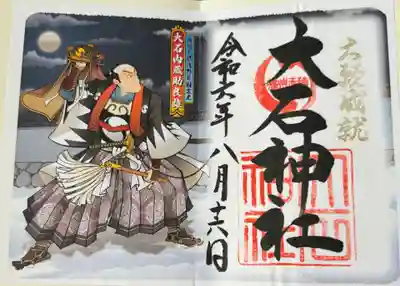 大願成就
大石神社
令和六年 八月十六日
大石内蔵助良雄